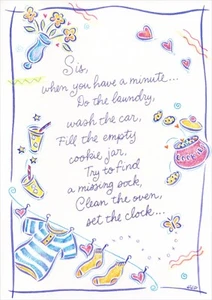 Sis,
when you have a minute...
Do the laundry,
wash the car,
Fill the empty
cookie jar,
Try to find
a missing sock,
Clean the oven,
set the clock...